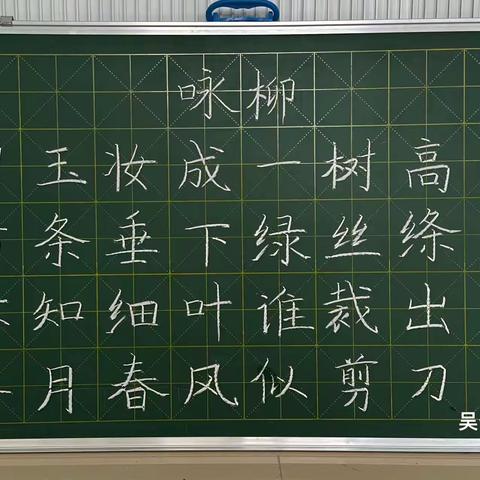 咏柳
玉妆成一树高
条垂下绿丝绦
知细叶谁裁出
月春风似剪刀
吴